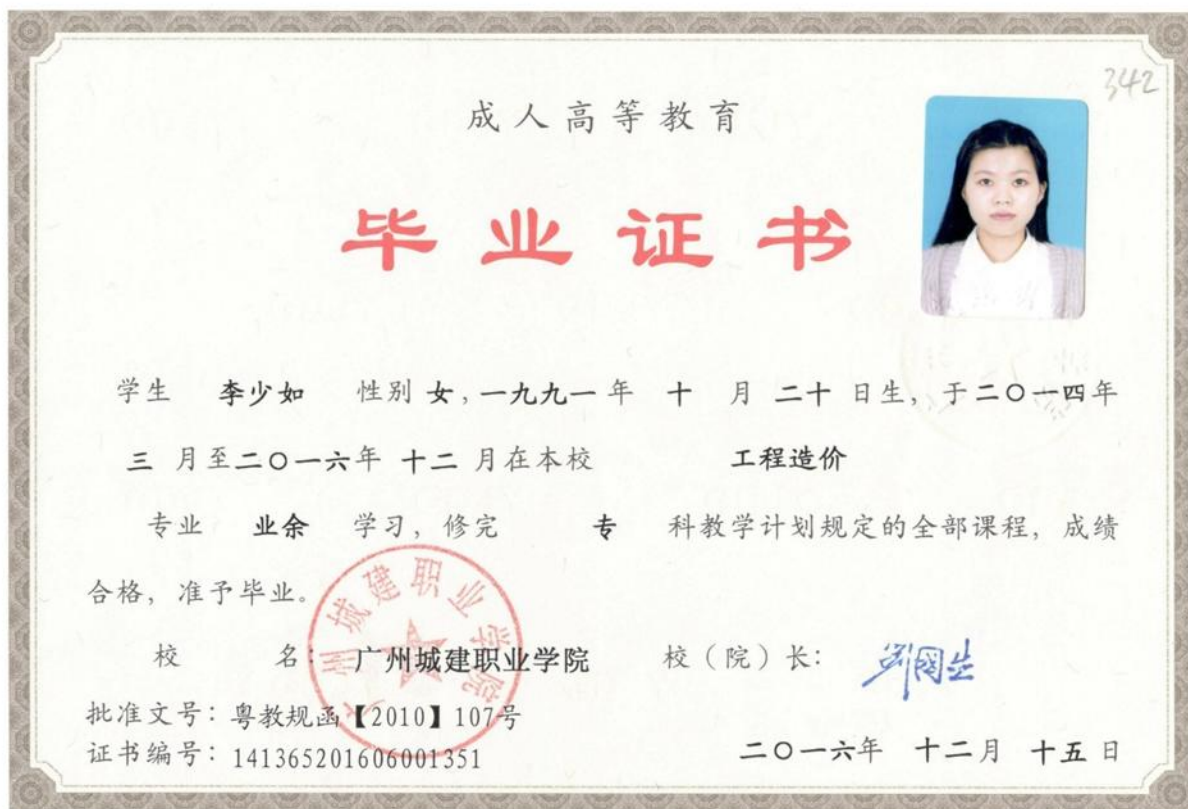 342
成人高等教育
毕业证书
学生 李少如 性别 女，一九九一 年 十 月 二十 日生，于二〇一四年
三 月至二〇一六年 十二 月在本校 工程造价
专业 业余 学习，修完 专 科教学计划规定的全部课程，成绩
合格，准予毕业。
广州城建职业学院
校 名：广州城建职业学院 校（院）长：
批准文号：粤教规函【2010】107号
证书编号：141365201606001351 二〇一六年 十二月 十五 日